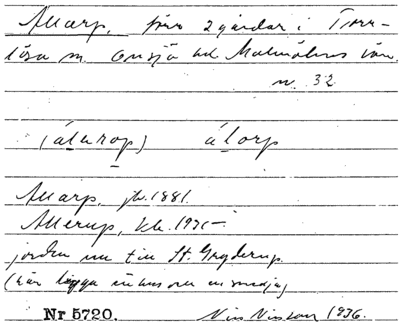 Allarp, förr 2 gårdar i Torr-
lösa sn. Onsjö hd. Malmöhus län.
n. 32
(áltarop) álorp
Allarp, jb. 1881.
Allerup, kb. 1935
jorden nu till St. Gryderup.
(här ligga en smedja)
Nr 5720. Nils Nilsson 1936.